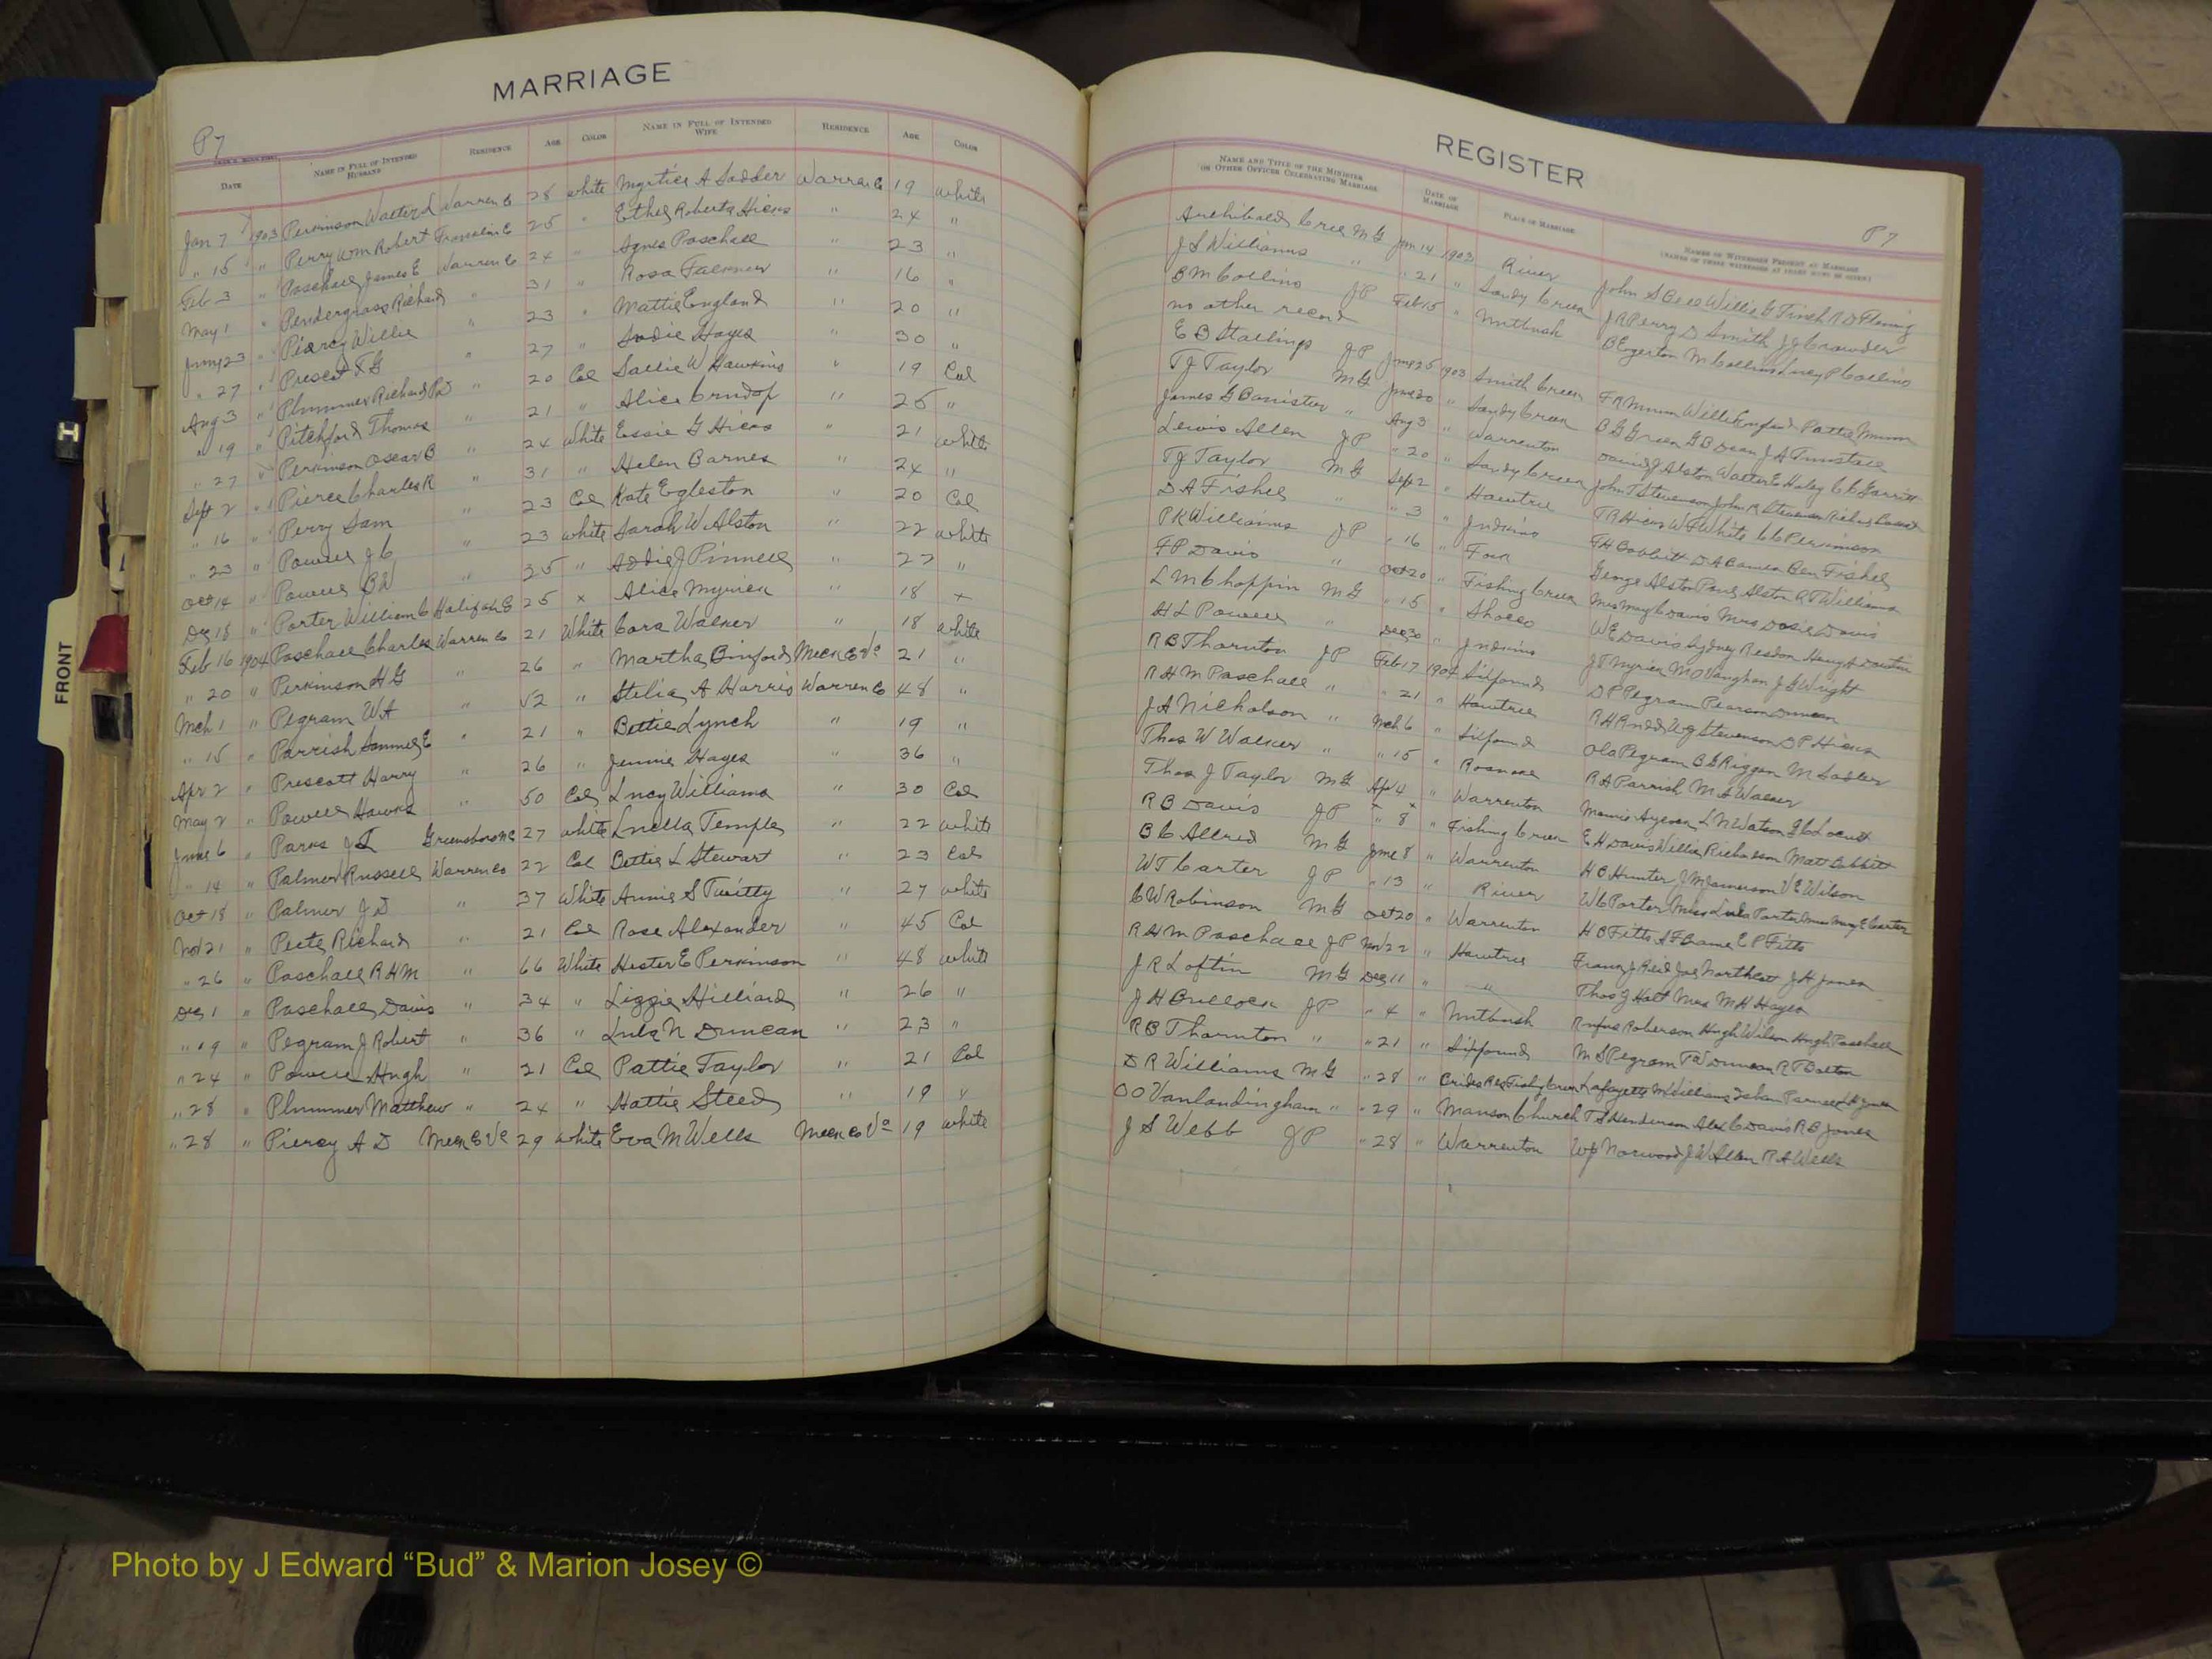 MARRIAGE
P7
DATE NAME IN FULL OF INTENDED HUSBAND RESIDENCE AGE COLOR NAME IN FULL OF INTENDED WIFE RESIDENCE AGE COLOR
Jan 7 1903 Perkinson Walter L Warren Co 28 white Myrtice A Sadder Warren Co 19 white
" 15 " Perry Wm Robert Franklin Co 25 " Ethel Roberta Hicks " 24 "
Feb 3 " Paschall James E Warren Co 24 " Agnes Paschall " 23 "
May 1 " Pendergrass Richard " 31 " Rosa Falkner " 16 "
June 23 " Piercy Willie " 23 " Mattie England " 20 "
" 27 " Prescot T G " 27 " Sadie Hayes " 30 "
Aug 3 " Plummer Richard " 20 Col Sallie W Hawkins " 19 Col
" 19 " Pitchford Thomas " 21 " Alice " 25 "
" 27 " Perkinson Oscar B " 24 White Essie G Hicks " 21 white
Sept 2 " Pierce Charles R " 31 " Helen Barnes " 24 "
" 16 " Perry Sam " 23 Col Kate Egleston " 20 Col
" 23 " Powell J C " 23 white Sarah W Alston " 22 white
Oct 14 " Powell B W " 35 " Addie J Pinnell " 27 "
Dec 18 " Porter William C Halifax Co 25 x Alice Myrick " 18 x
Feb 16 1904 Paschall Charles Warren Co 21 White Cora Walker " 18 white
" 20 " Perkinson H G " 26 " Martha Binford Meck Co Va 21 "
Mch 1 " Pegram W A " 52 " Stelia A Harris Warren Co 48 "
" 15 " Parrish Sammuel E " 21 " Bettie Lynch " 19 "
Apr 2 " Prescott Harry " 26 " Jennie Hayes " 36 "
May 2 " Powell Hawks " 50 Col Lucy Williams " 30 Col
June 6 " Parks J Greensboro NC 27 white Luella Temple " 22 white
" 14 " Palmer Russell Warren Co 22 Col Bettie L Stewart " 23 Col
Oct 18 " Palmer J D " 37 White Annie S Twitty " 27 white
Nov 21 " Peete Richard " 21 Col Rose Alexander " 45 Col
" 26 " Paschall R H M " 66 White Hester E Perkinson " 48 white
Dec 1 " Paschall Davis " 34 " Lizzie Hilliard " 26 "
" 19 " Pegram J Robert " 36 " Lula N Duncan " 23 "
" 24 " Powell Hugh " 21 Col Pattie Taylor " 21 Col
" 28 " Plummer Matthew " 24 " Hattie Steed " 19 "
" 28 " Piercy A D Meck Co Va 29 white Eva M Wells Meck Co Va 19 white
REGISTER
P7
NAME AND TITLE OF THE MINISTER OR OTHER OFFICER CELEBRATING MARRIAGE DATE OF MARRIAGE PLACE OF MARRIAGE NAMES OF WITNESSES PRESENT AT MARRIAGE
Archibald Cree M G Jan 14 1903 River John S Willis G Finch R D Fleming
J S Williams " " 21 " Sandy Creek J R Perry D Smith J J Crowder
B M Collins J P Feb 15 " Nutbush B Egerton M Collins Lucy P Collins
no other record
E B Stallings J P June 25 1903 Smith Creek F R Mumn Willie England Pattie Mumn
T J Taylor M G June 20 " Sandy Creek B G Green G B Dean J A
James G Banister " Aug 3 " Warrenton David J Alston Walter E Haley C C Garrett
Lewis Allen J P " 20 " Sandy Creek John T Stevenson John R Stevenson
T J Taylor M G Sept 2 " Hawtree T R Hicks W F White C C Perkinson
D A Fishel " " 3 " Judkins T H Bobbitt D A Ben Fishel
P K Williams J P " 16 " Fork George Alston Paul Alston Williams
F P Davis " Oct 20 " Fishing Creek Mrs May C Davis Mrs Dosie Davis
L M Chappin M G " 15 " Shocco W E Davis Sydney
H L Powell " Dec 30 " Judkins J T Myrick M O Vaughan J G Wright
R B Thornton J P Feb 17 1904 Sixpound D P Pegram Pearson Duncan
R H M Paschall " " 21 " Hawtree R H Stevenson D P Hicks
J A Nicholson " Mch 6 " Sixpound Ola Pegram B G Riggan M Sadler
Thos W Walker " " 15 " Roanoke R A Parrish M A Walker
Thos J Taylor M G Apr 4 " Warrenton Mamie L N Watson
R B Davis J P " 8 " Fishing Creek E H Davis Willie Richardson Matt Bobbitt
B C Allred M G June 8 " Warrenton H B Hunter J M Jamerson V E Wilson
W T Carter J P " 13 " River W C Porter Miss Lula Porter Miss May E Carter
C W Robinson M G Oct 20 " Warrenton H B Fitts E P Fitts
R H M Paschall J P Nov 22 " Hawtree Frank J Reid Joe Northcott J H Jones
J R Loftin M G Dec 11 " " Thos J Holt Mrs M H Hayes
J H Bullock J P " 4 " Nutbush Rufus Roberson Hugh Wilson Hugh Paschall
R B Thornton " " 21 " Sixpound M S Pegram T W Duncan R T Bolton
D R Williams M G " 28 " Brides Res Fishing Creek Lafayette Williams
O O Vanlandingham " " 29 " Manson Church T S Henderson Alex C Davis R B Jones
J S Webb J P " 28 " Warrenton W J Norwood J W Allen R A Wells
FRONT
H
Photo by J Edward "Bud" & Marion Josey ©